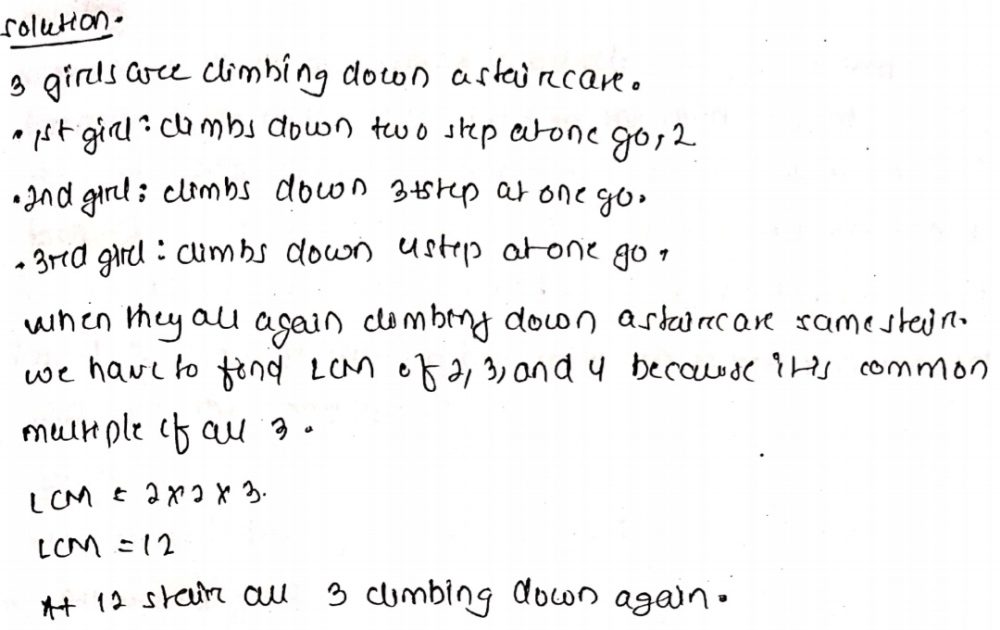 solution.
3 girls are climbing down a staircare.
• 1st girl : climbs down two step at one go, 2
• 2nd girl : climbs down 3 step at one go.
• 3rd girl : climbs down 4 step at one go.
when they all again climbing down a staircare same stair.
we have to find LCM of 2, 3, and 4 because it is common
multiple of all 3.
LCM = 2 x 2 x 3.
LCM = 12
At 12 stair all 3 climbing down again.